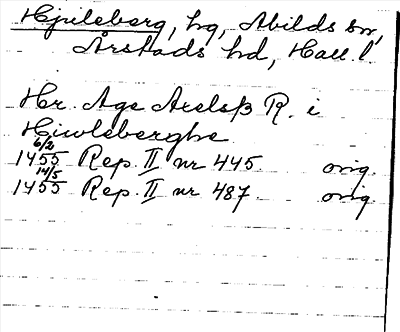 Hjuleberg, hg, Abilds sn,
Årstads hd, Hall. l.
Hr. Age Axelsß R. i
Hiwleberghe
1455 6/2 Rep. II nr 445 orig.
1455 14/5 Rep. II nr 487 orig.